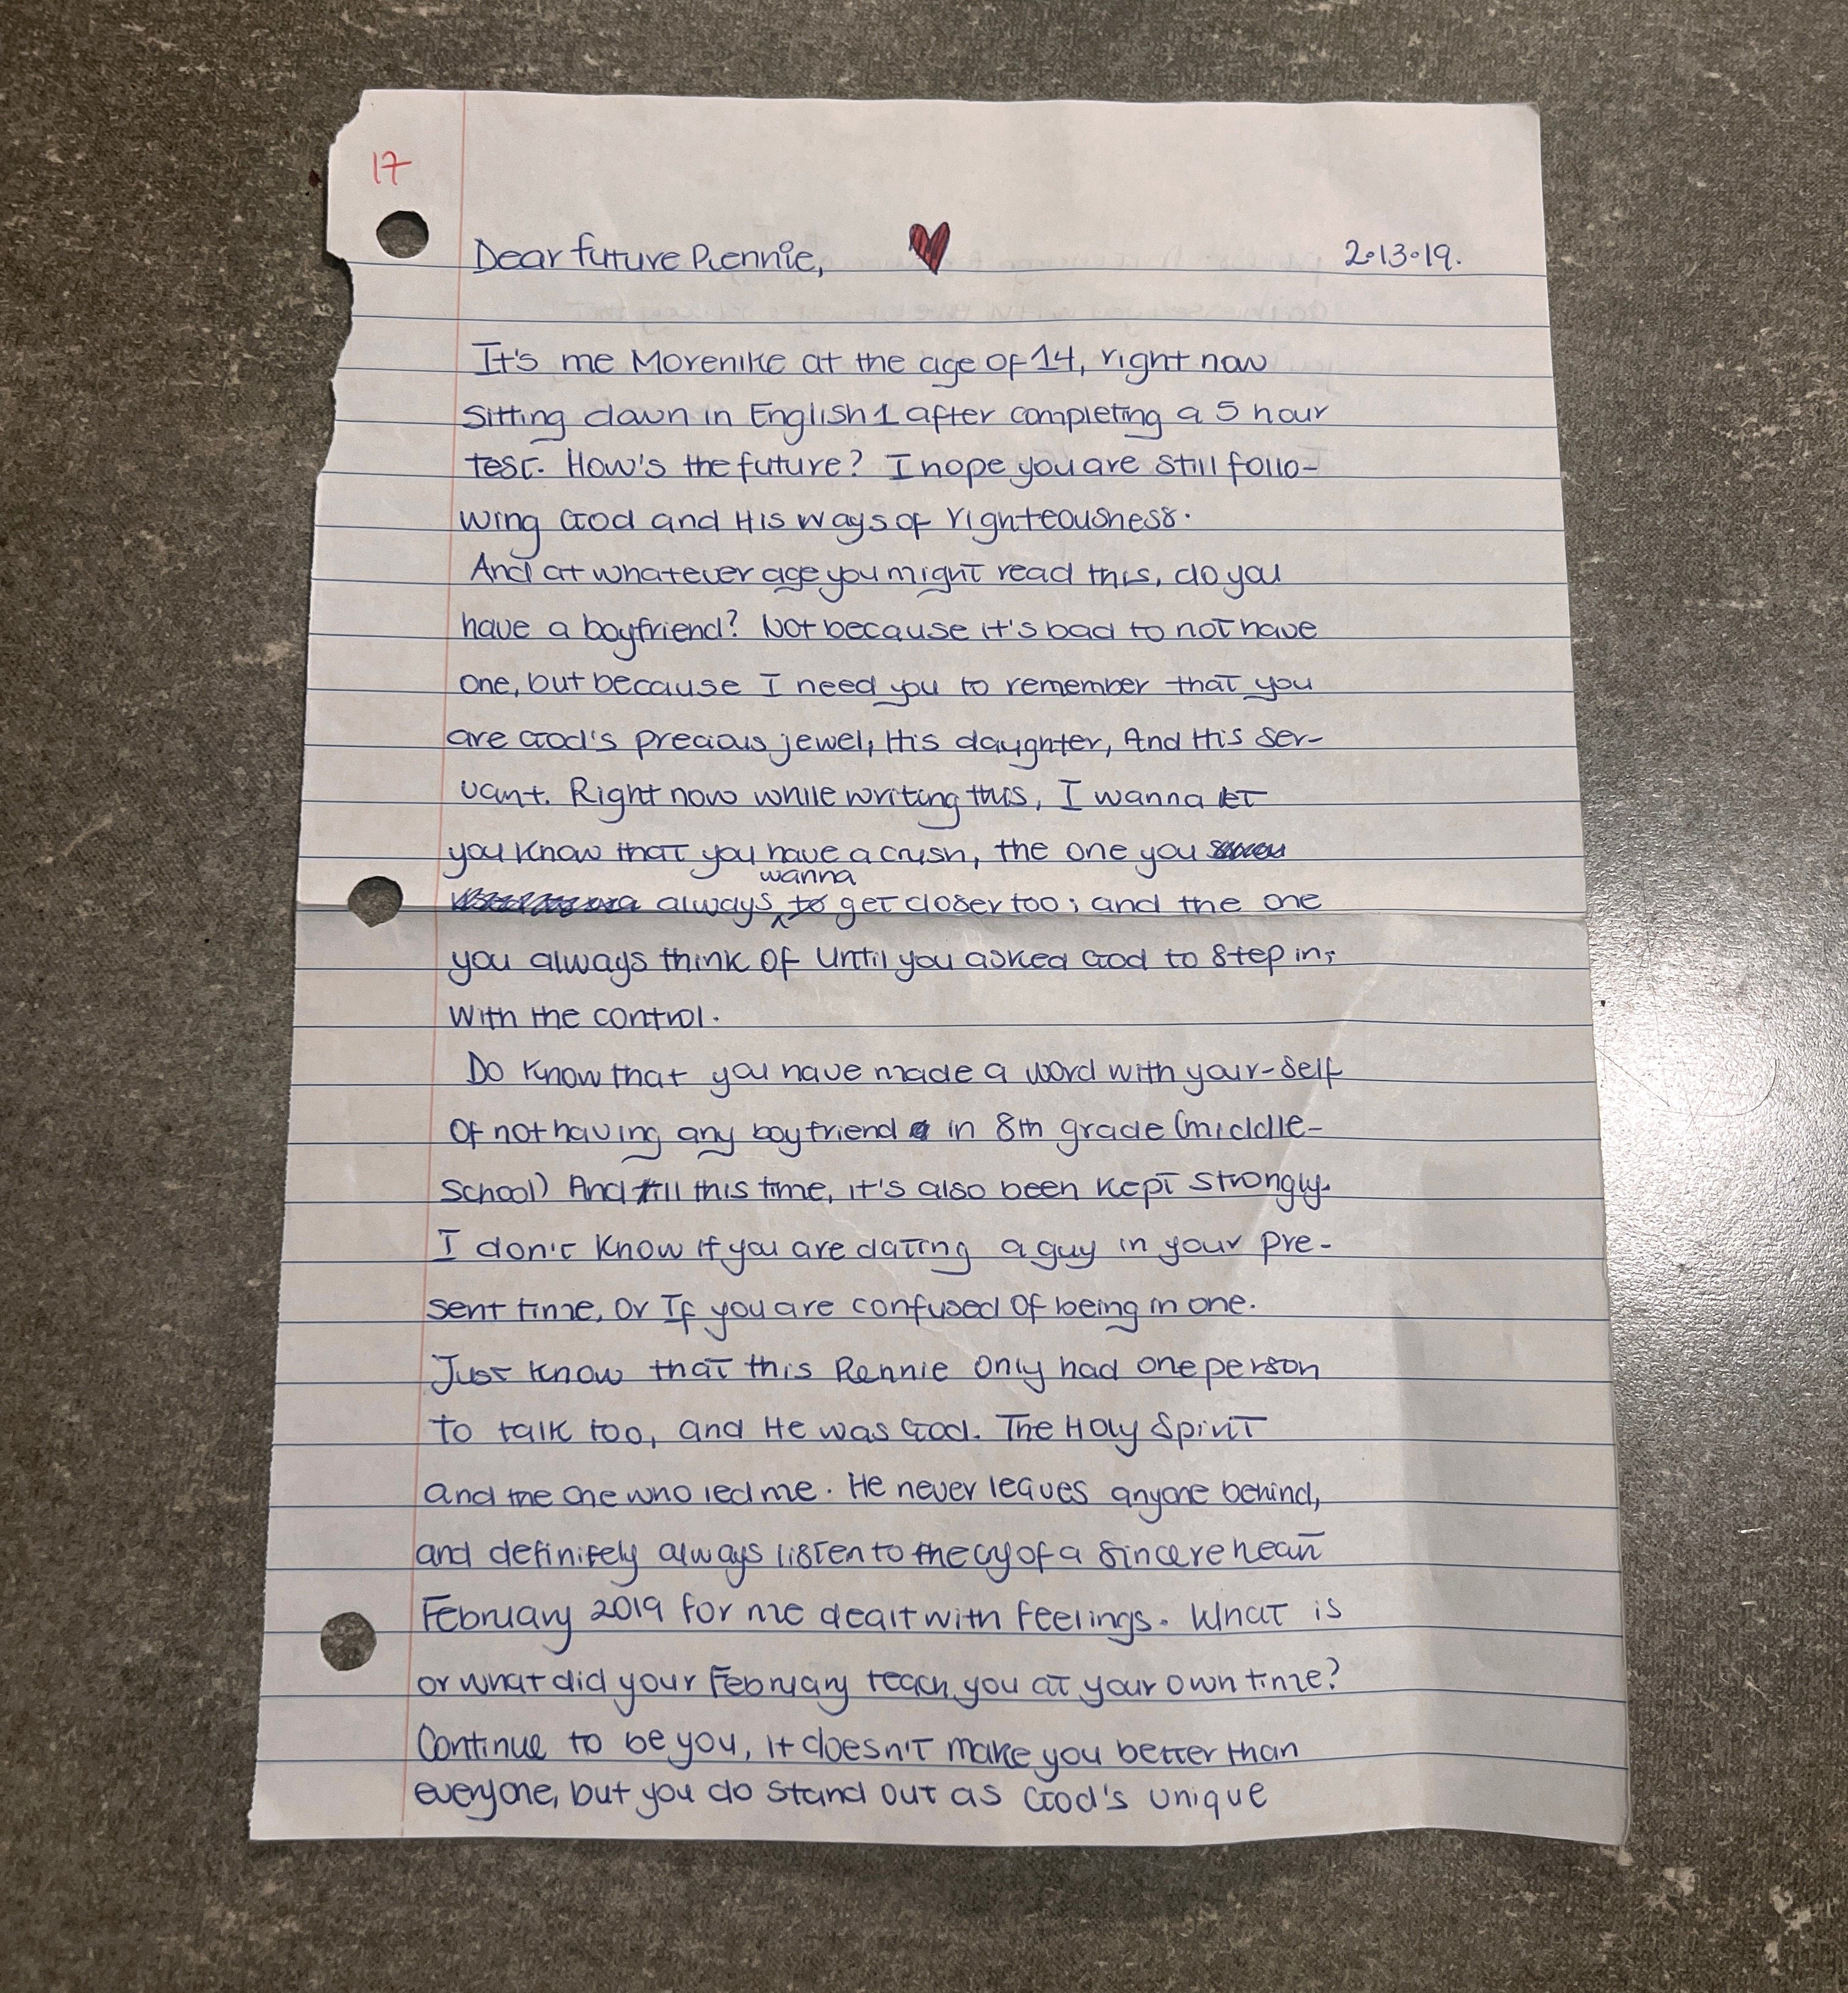 17
Dear future Rennie, 2.13.19.
It's me Morenike at the age of 14, right now
Sitting down in English 1 after completing a 5 hour
test. How's the future? I hope you are still follo-
wing God and His ways of righteousness.
And at whatever age you might read this, do you
have a boyfriend? Not because it's bad to not have
one, but because I need you to remember that you
are God's precious jewel, His daughter, And His ser-
vant. Right now while writing this, I wanna let
you know that you have a crush, the one you
always wanna to get closer too; and the one
you always think of until you asked God to step in;
with the control.
Do know that you have made a word with your-self
Of not having any boyfriend in 8th grade (middle-
school) And till this time, it's also been kept strongly.
I don't know if you are dating a guy in your pre-
sent time, or If you are confused of being in one.
Just know that this Rennie only had one person
to talk too, and He was God. The Holy Spirit
and the one who led me. He never leaves anyone behind,
and definitely always listen to the cry of a sincere heart
February 2019 for me dealt with feelings. What is
or what did your February teach you at your own time?
Continue to be you, it doesn't make you better than
everyone, but you do stand out as God's unique